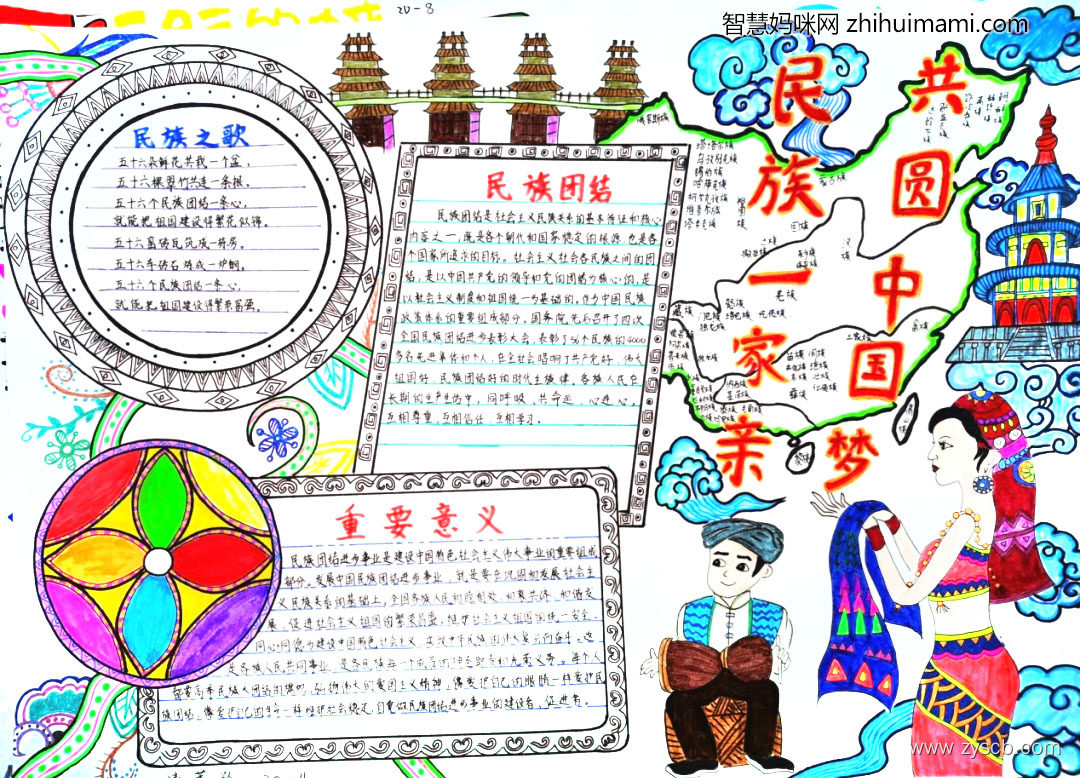 20-8
智慧妈咪网 zhihuimami.com
民族一家亲
共圆中国梦
民族之歌
五十六朵鲜花共栽一个盆,
五十六棵翠竹共连一条根。
五十六个民族团结一条心,
就能把祖国建设得繁花似锦。
五十六窑砖瓦筑成一栋房。
五十六车矿石炼成一炉钢。
五十六个民族团结一条心,
就能把祖国建设得繁荣富强。
民族团结
民族团结是社会主义民族关系的基本特征和核心
内容之一,既是各个朝代和国家稳定的根源,也是各
个国家所追求的目标。社会主义社会各民族之间的团
结,是以中国共产党的领导和党的团结为核心的,是
以社会主义制度和祖国统一为基础的,作为中国民族
政策体系的重要组成部分。国务院先后召开了四次
全国民族团结进步表彰大会,表彰了56个民族的4000
多名先进单体和个人,在全社会唱响了共产党好、伟大
祖国好、民族团结好的时代主旋律。各族人民在
长期的生产生活中,同呼吸,共命运,心连心,
互相尊重,互相信任,互相学习。
重要意义
民族团结进步事业是建设中国特色社会主义伟大事业的重要组成
部分。发展中国民族团结进步事业,就是要在巩固和发展社会主
义民族关系的基础上,全国各族人民和睦相处、和衷共济、和谐发
展,促进社会和祖国的繁荣昌盛,
同心同德为建设中国特色社会主义、实现中华民族的伟大复兴而奋斗。这
是各族人民共同事业,是各民族每一个成员的神圣职责和光荣义务。每个人
都要高举民族大团结的旗帜,弘扬伟大的爱国主义精神,像爱护自己的眼睛一样爱护民
族团结,像爱护自己的生命一样维护社会稳定,自觉做民族团结进步事业的建设者、促进者。
俄罗斯族
塔塔尔族
乌孜别克族
锡伯族
哈萨克族
柯尔克孜族
维吾尔族
塔吉克族
蒙古族
回族
汉族
土族
羌族
藏族
门巴族
独龙族
彝族
仡佬族
土家族
畲族
苗族
侗族
黎族
www.zyscb.com